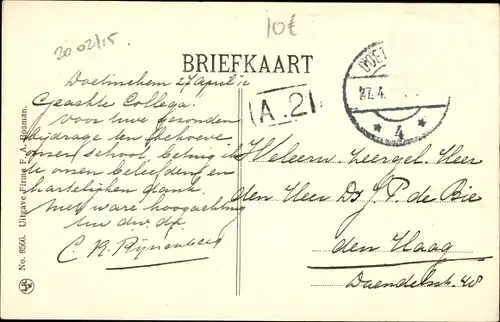 20 02/15
10€
BRIEFKAART
Doetinchem 27 April '12
Geachte Collega!
Voor Uwe gezonden
bijdrage ten behoeve
onzer school, betuig ik
U onzen beleefden en
hartelijken dank.
Met ware hoogachting
Uw dw. dr.
C. R. Rijnenberg
(A.2)
POST
27.4.
* 4 *
Weledelen zeergel. Heer
den Heer Dr J. P. de Bie
den Haag
Daendelsstr. 40
No. 8560. Uitgave Firma F. A. Bosman.